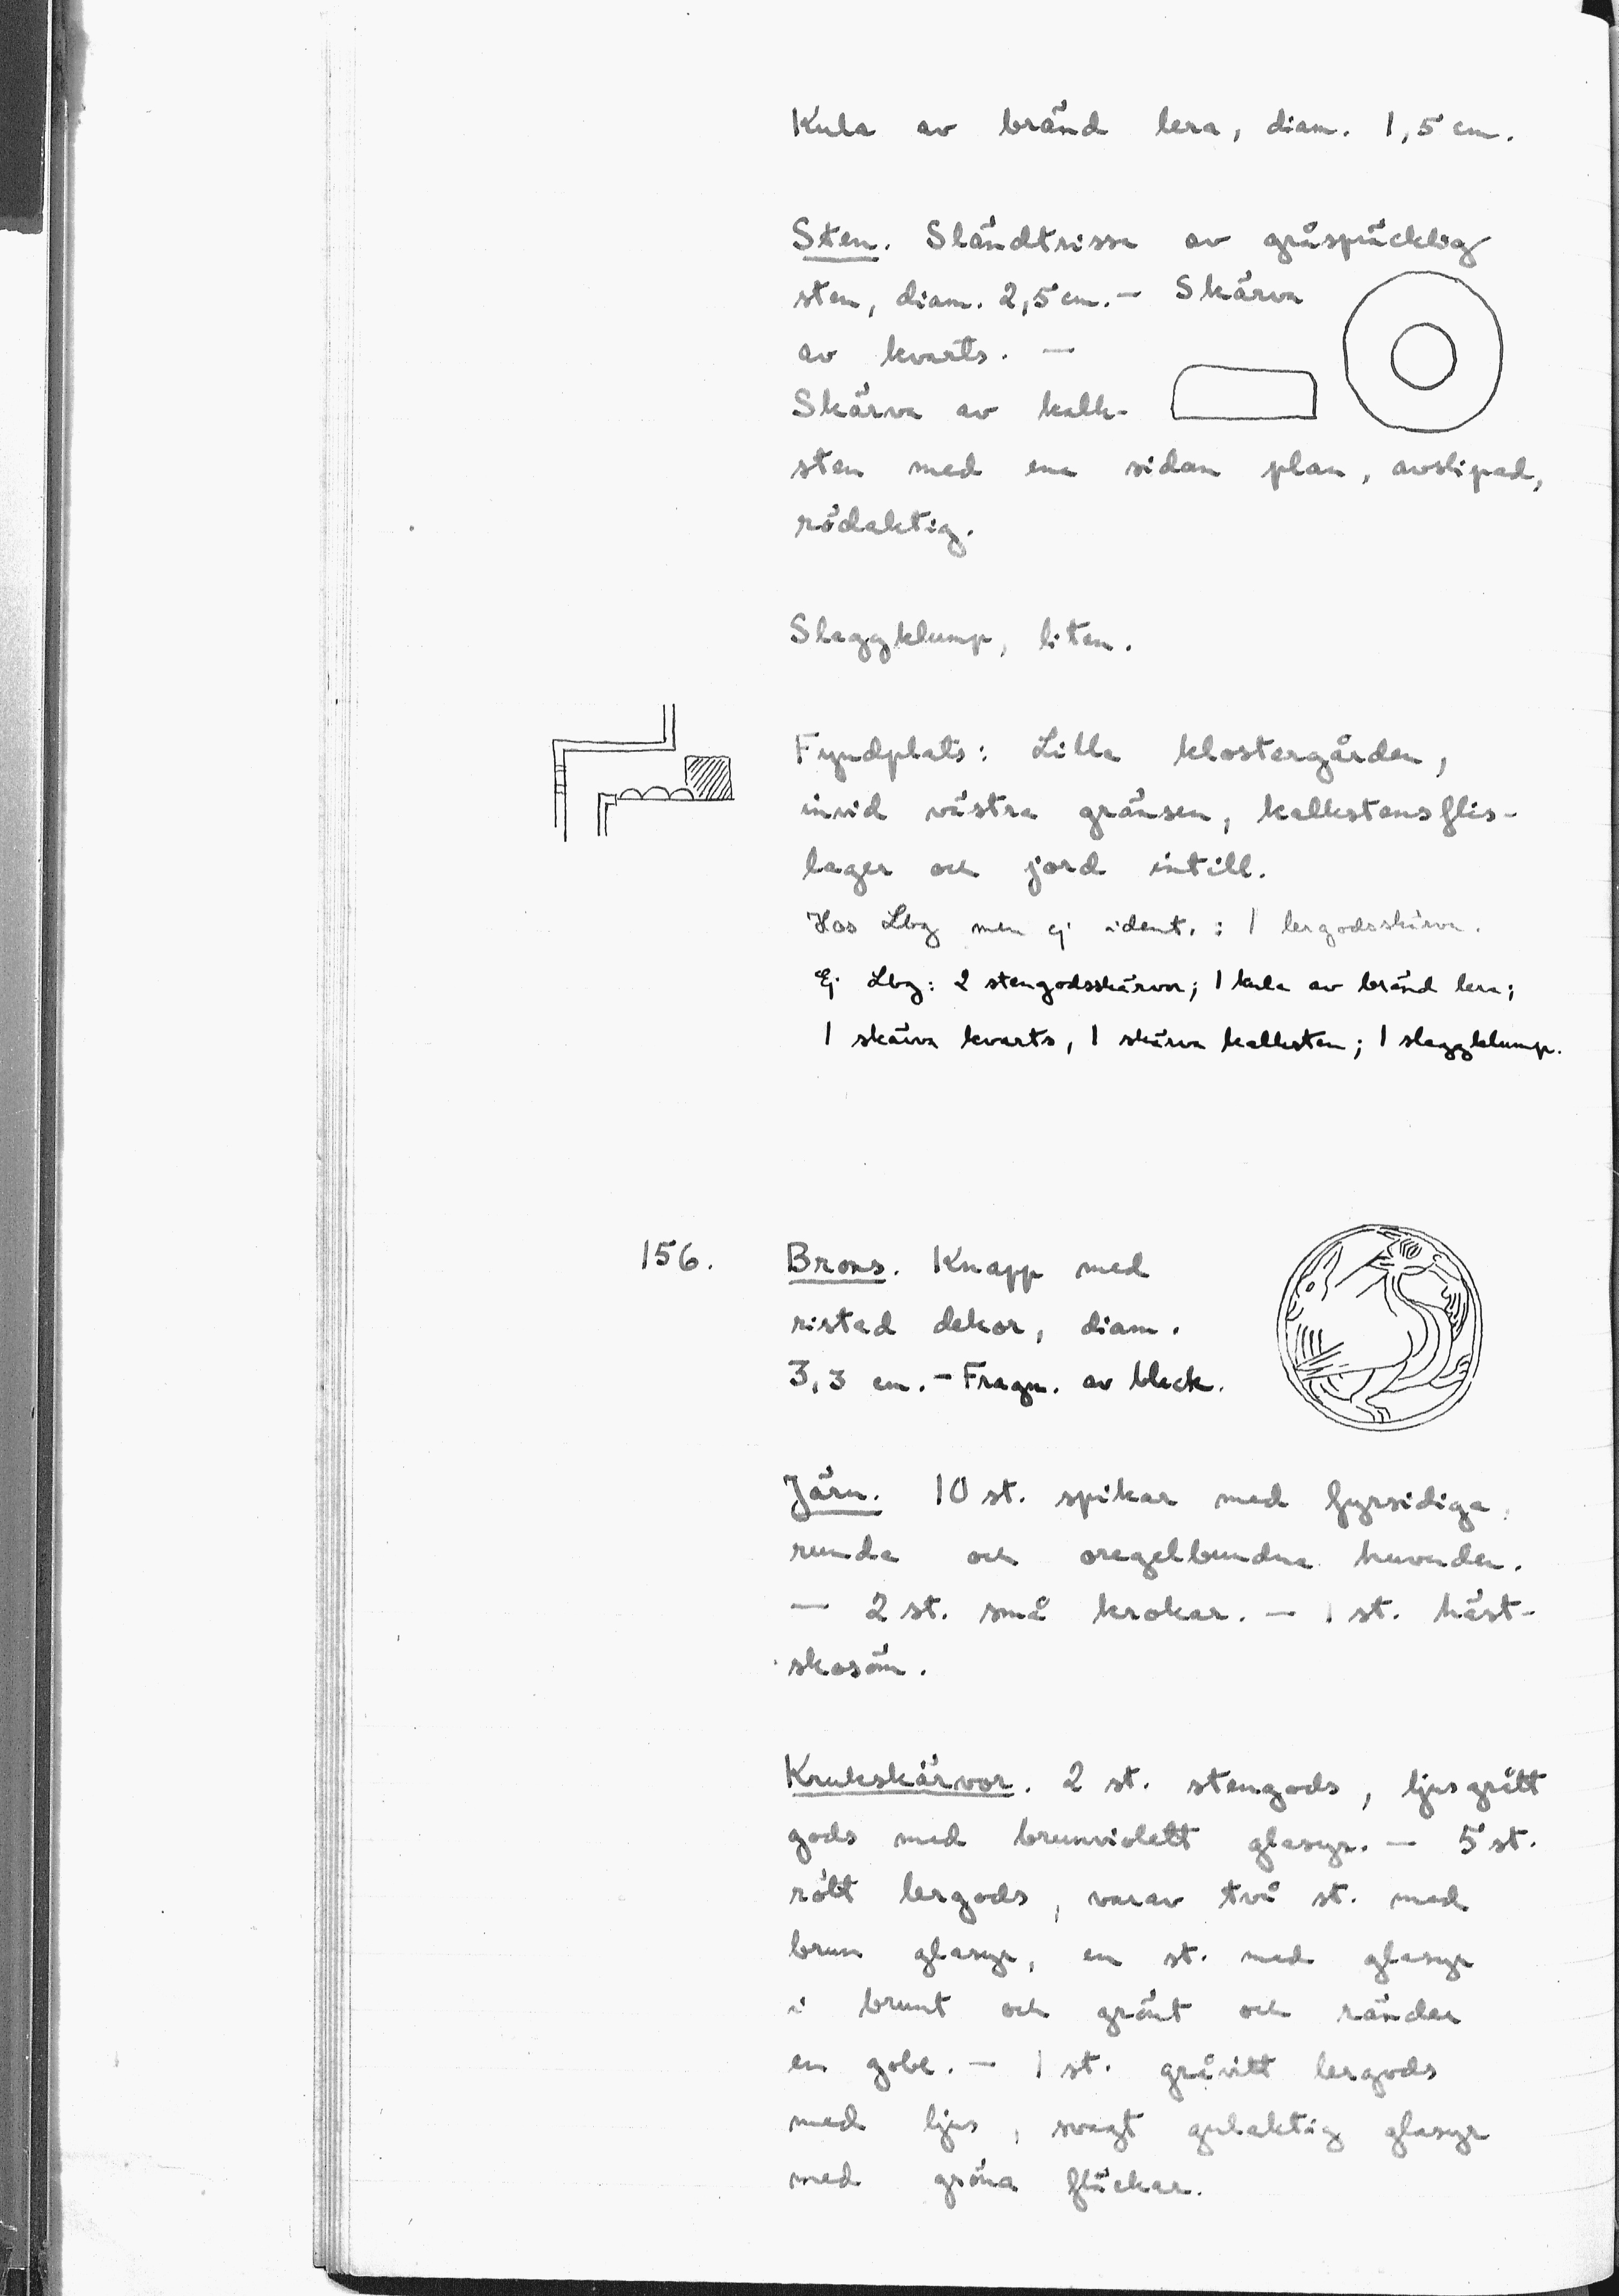 Kula av bränd lera, diam. 1,5 cm.
Sten. Sländtrissa av gråspräcklig
sten, diam. 2,5 cm. — Skärva
av kvarts. —
Skärva av kalk-
sten med ena sidan plan, avslipad,
rödaktig.
Slaggklump, liten.
Fyndplats: Lilla klostergården,
invid västra gränsen, kalkstensflis-
lager och jord intill.
Hos Lbg men ej ident. : 1 lergodsskärva.
Ej Lbg: 2 stengodsskärvor; 1 kula av bränd lera;
1 skärva kvarts, 1 skärva kalksten; 1 slaggklump.
156. Brons. Knapp med
ristad dekor, diam.
3,3 cm. — Fragm. av bleck.
Järn. 10 st. spikar med fyrsidiga,
runda och oregelbundna huvuden.
— 2 st. små krokar. — 1 st. häst-
skosöm.
Krukskärvor. 2 st. stengods, ljusgrått
gods med brunviolett glasyr. — 5 st.
rött lergods, varav två st. med
brun glasyr, en st. med glasyr
i brunt och grönt och ränder
en gobe. — 1 st. gråvitt lergods
med ljus, svagt gulaktig glasyr
med gröna fläckar.